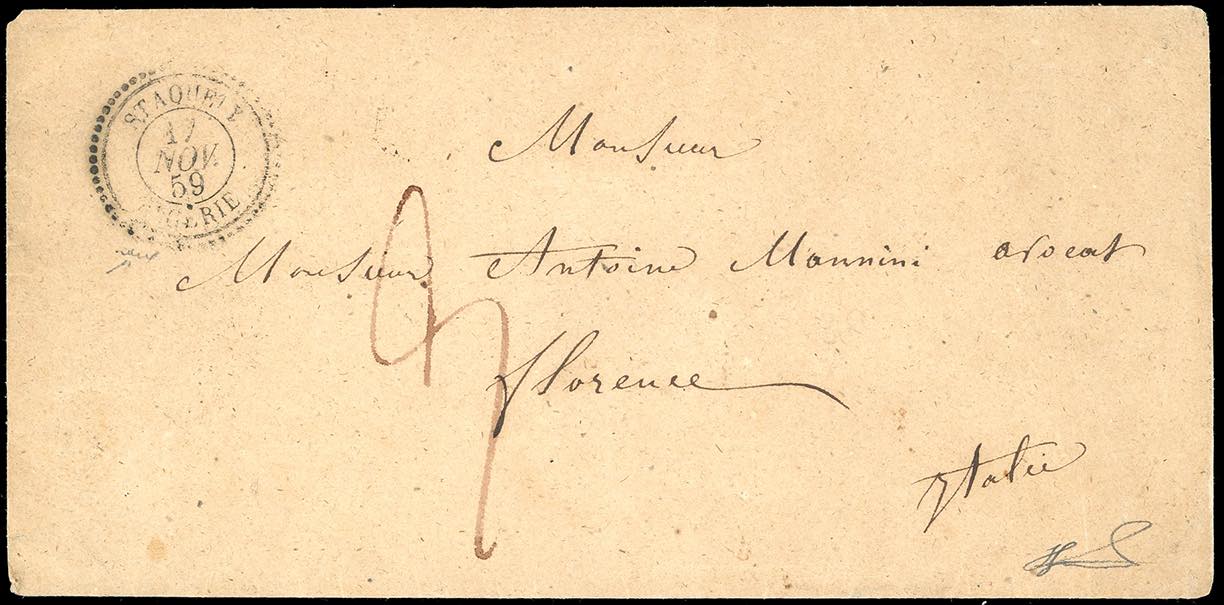 STAOUELY
17
NOV.
59
ALGERIE
Monsieur
Monsieur Antoine Mannini avocat
Florence
Italie